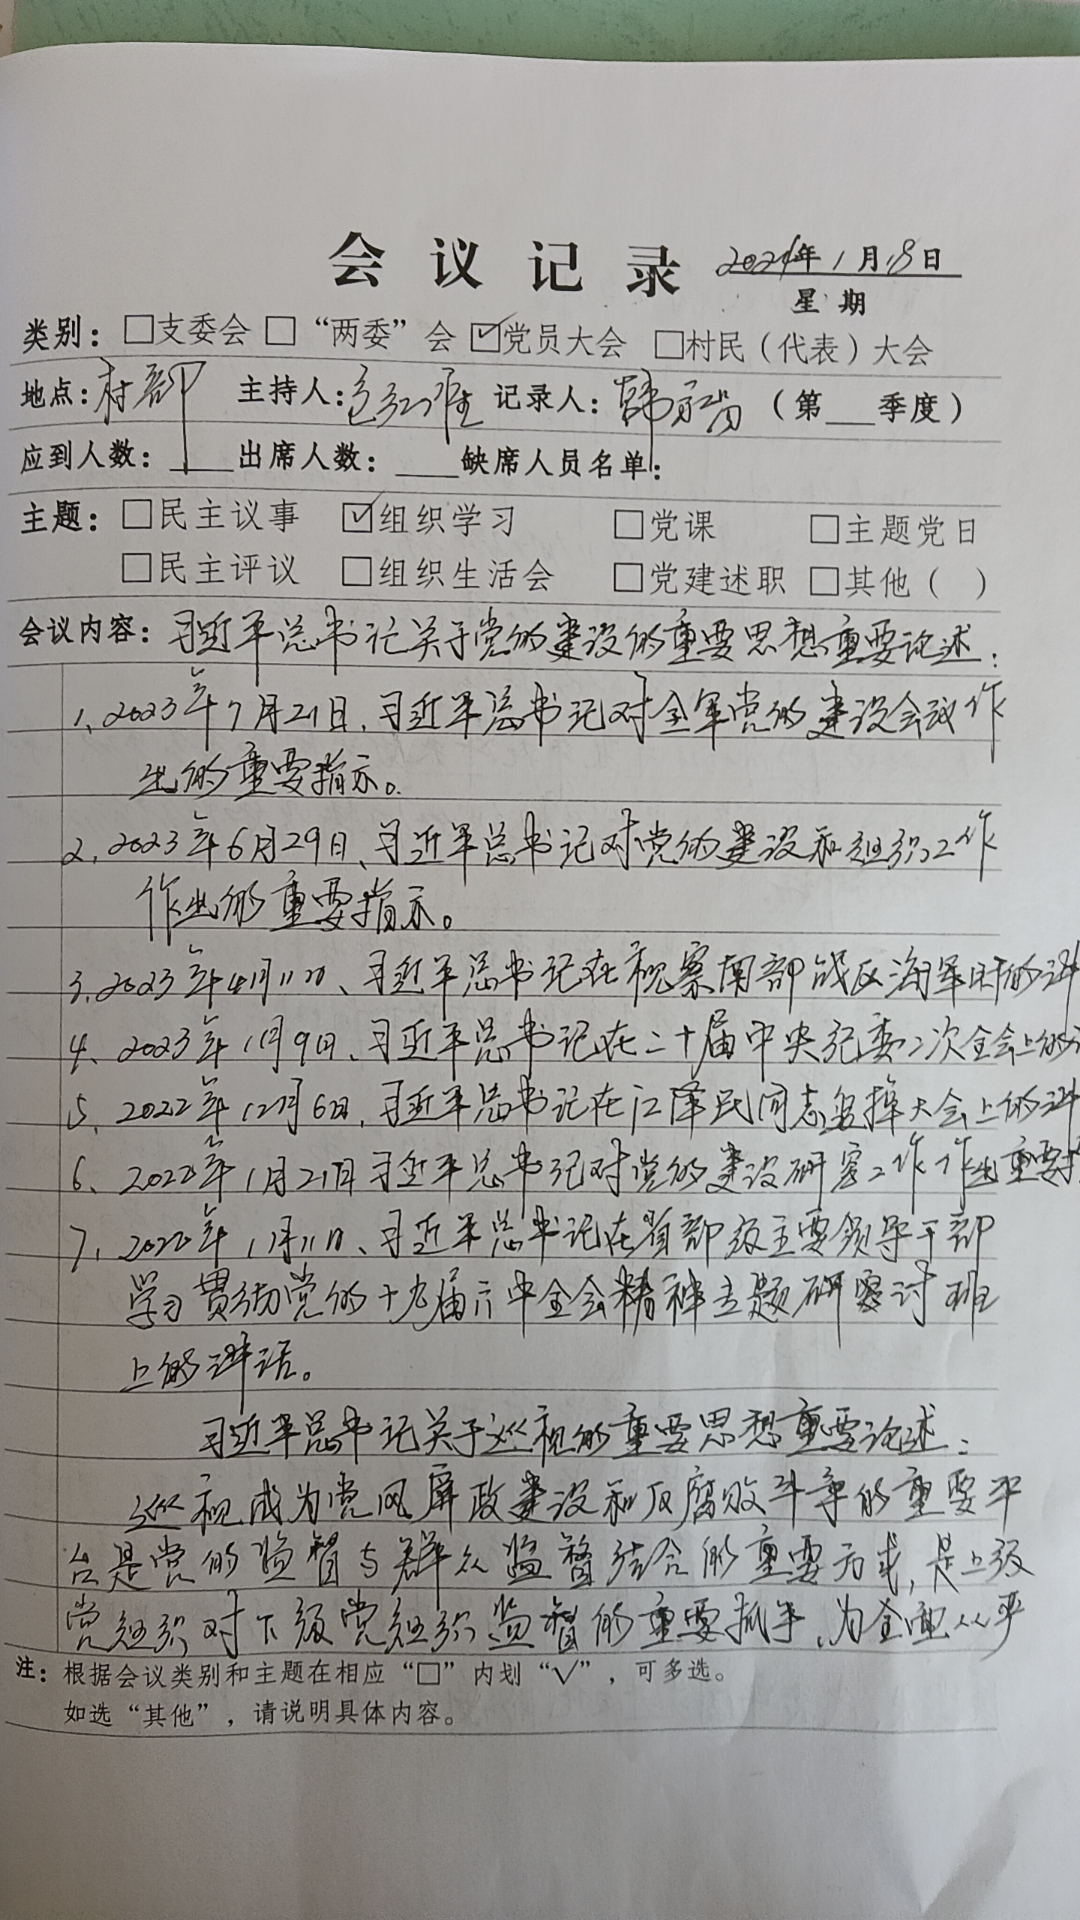 会议记录 2024年1月18日
星期
类别：□支委会 □“两委”会 ☑党员大会 □村民（代表）大会
地点：村部 主持人： 记录人：韩 （第___季度）
应到人数：____出席人数：____缺席人员名单：
主题：□民主议事 ☑组织学习 □党课 □主题党日
□民主评议 □组织生活会 □党建述职 □其他（ ）
会议内容：习近平总书记关于党的建设的重要思想重要论述：
1、2023年7月21日、习近平总书记对全军党的建设会议作
出的重要指示。
2、2023年6月29日、习近平总书记对党的建设和组织工作
作出的重要指示。
3、2023年4月11日、习近平总书记在视察南部战区海军时的讲
4、2023年1月9日、习近平总书记在二十届中央纪委二次全会上的
5、2022年12月6日、习近平总书记在江泽民同志追悼大会上的讲
6、2022年1月21日习近平总书记对党的建设研究工作作出重要指
7、2022年1月11日、习近平总书记在省部级主要领导干部
学习贯彻党的十九届六中全会精神专题研讨班
上的讲话。
习近平总书记关于巡视的重要思想重要论述：
巡视成为党风廉政建设和反腐败斗争的重要平
台是党的监督与群众监督结合的重要方式，是上级
党组织对下级党组织监督的重要抓手、为全面从严
注：根据会议类别和主题在相应“□”内划“√”，可多选。
如选“其他”，请说明具体内容。